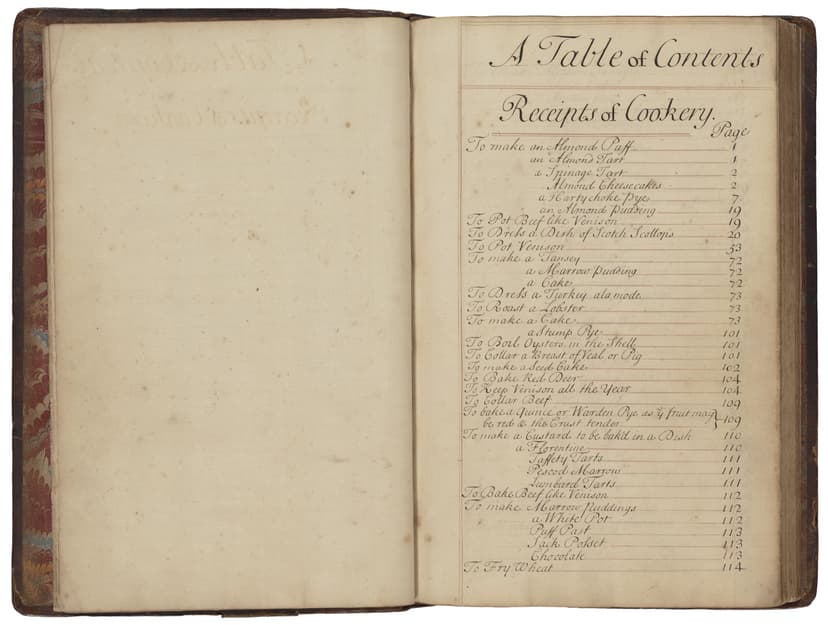 A Table of Contents
Receipts of Cookery.
Page
To make an Almond Puff 1
an Almond Tart 1
a Spinage Tart 2
Almond Cheesecakes 2
a Hartychoke Pye 7
an Almond Pudding 19
To Pot Beef like Venison 19
To Dress a Dish of Scotch Scollops 20
To Pot Venison 53
To make a Tansey 72
a Marrow Pudding 72
a Cake 72
To Dress a Turkey alamode 73
To Roast a Lobster 73
To make a Cake 73
a Stump Pye 101
To Boil Oysters in the Shell 101
To Collar a Breast of Veal or Pig 101
To make a Seed Cake 102
To Bake Red Deer 104
To Keep Venison all the Year 104
To Collar Beef 109
To bake a Quince or Warden Pye as yt fruit may
be red & the Crust tender 109
To make a Custard to be bak'd in a Dish 110
a Florentine 110
Taffety Tarts 111
Pescod Marrow 111
Lumbard Tarts 111
To Bake Beef like Venison 112
To make Marrow Puddings 112
a White Pot 112
Puff Past 113
Sack Posset 113
Chocolate 113
To Fry Wheat 114